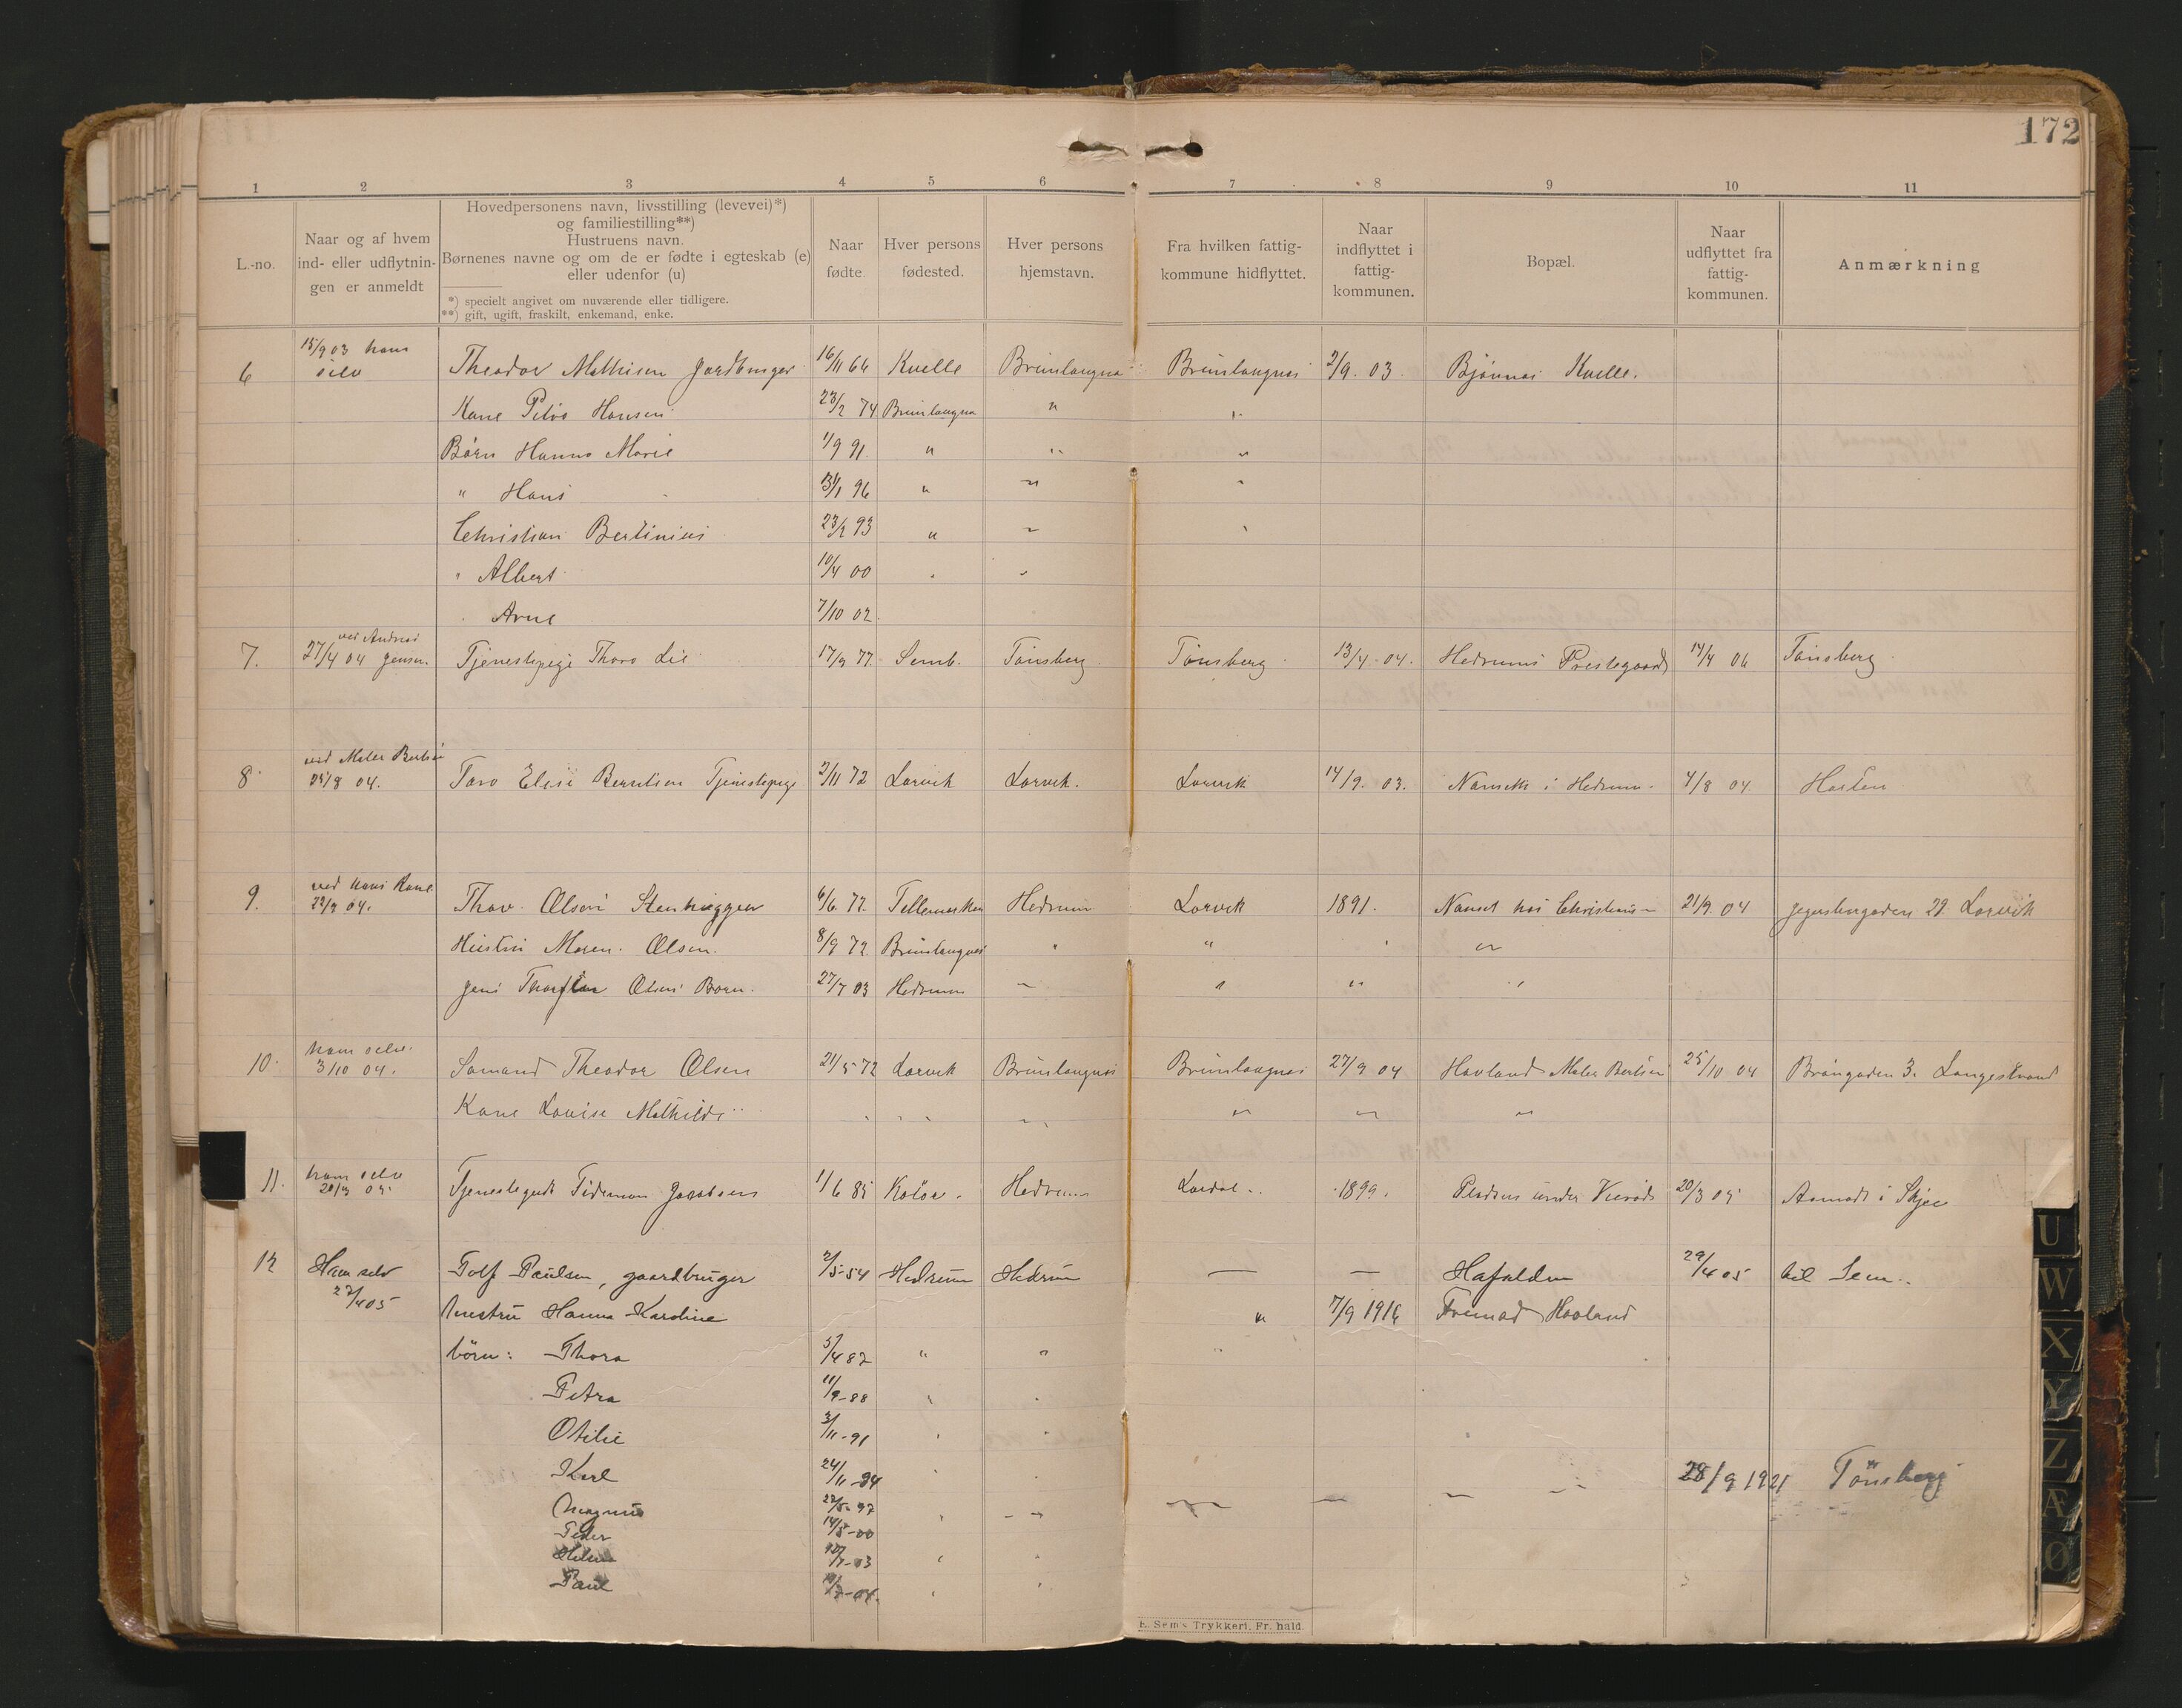 172
1 2 3 4 5 6 7 8 9 10 11
L.-no.
Naar og af hvem
ind- eller udflytnin-
gen er anmeldt
Hovedpersonens navn, livsstilling (levevei)*)
og familiestilling**)
Hustruens navn.
Børnenes navne og om de er fødte i egteskab (e)
eller udenfor (u)
*) specielt angivet om nuværende eller tidligere.
**) gift, ugift, fraskilt, enkemand, enke.
Naar
fødte.
Hver persons
fødested.
Hver persons
hjemstavn.
Fra hvilken fattig-
kommune hidflyttet.
Naar
indflyttet i
fattig-
kommunen.
Bopæl.
Naar
udflyttet fra
fattig-
kommunen.
Anmærkning
15/9 03 ham
6 selv Theodor Mathisen Gardbruger 16/11 66 Kvelle Brunlangnes Brunlangnes 2/9. 03. Bjønnes Kvelle.
Kone Hansen 23/2 74 Brunlangnes " "
Børn Hanna Marie 1/9 91 " " "
" Hans 96 " " "
Christian Bertinius 23/2 93 " "
" Albert 10/4 00 " "
" Arne 7/10 02.
ved Andreas
7. 27/4 04 Jensen. Tjenestepige Thora Lie 17/9 77. Semb. Tønsberg Tønsberg 13/4. 04. Hedrums Prestegaard 14/4 06 Tønsberg
ved Maler Bertsen
8 25/8 04. Elise Berntsen Tjenestepige 2/11 72 Larvik Larvik. Larvik 14/9. 03. i Hedrum. 4/8 04 Horten
ved hans Kone
9. 22/9 04. Thov. Olsen Stenhugger 6/6. 77. Hedrum Larvik 1891. Nanset hos 21/9. 04 29 Larvik
Hustru Maren. Olsen. 8/9 72 Brunlangnes " " " "
Jens Olsen Barn. 27/7 03 Hedrum " " " "
ham selv.
10. 3/10 04. Sømand Theodor Olsen 21/5 72 Larvik Brunlangnes Brunlangnes 27/9 04 Hovland Maler Bertsen 25/10 04 3. Langestrand
Kone Lovise Mathilde " " " " " "
ham selv
11. Tjenestegut Tideman Jacobsen 1/6 85 Hedrum Lardal. 1899. under 20/3 05 i Skjee
12 Ham selv Tolf Paulsen, gaardbruger 2/5-54 Hedrum Hedrum — — 29/4 05 til Sem.
27/4 05 hustru Hanna Karoline " 7/9 1916 Fremad Hovland
børn: Thora 5/4 87 " " "
Petra 11/9-88 " "
Otilie 3/11-91 " "
Karl 24/11-94 " " 28/9 1921 Tønsberg
Magnus 22/5-97 " "
Peder 14/5-00
Helene 7-03 " "
Paul " "
E. Sem's Trykkeri, Fr. hald.
U
W
X
Y
Z
Æ
Ø